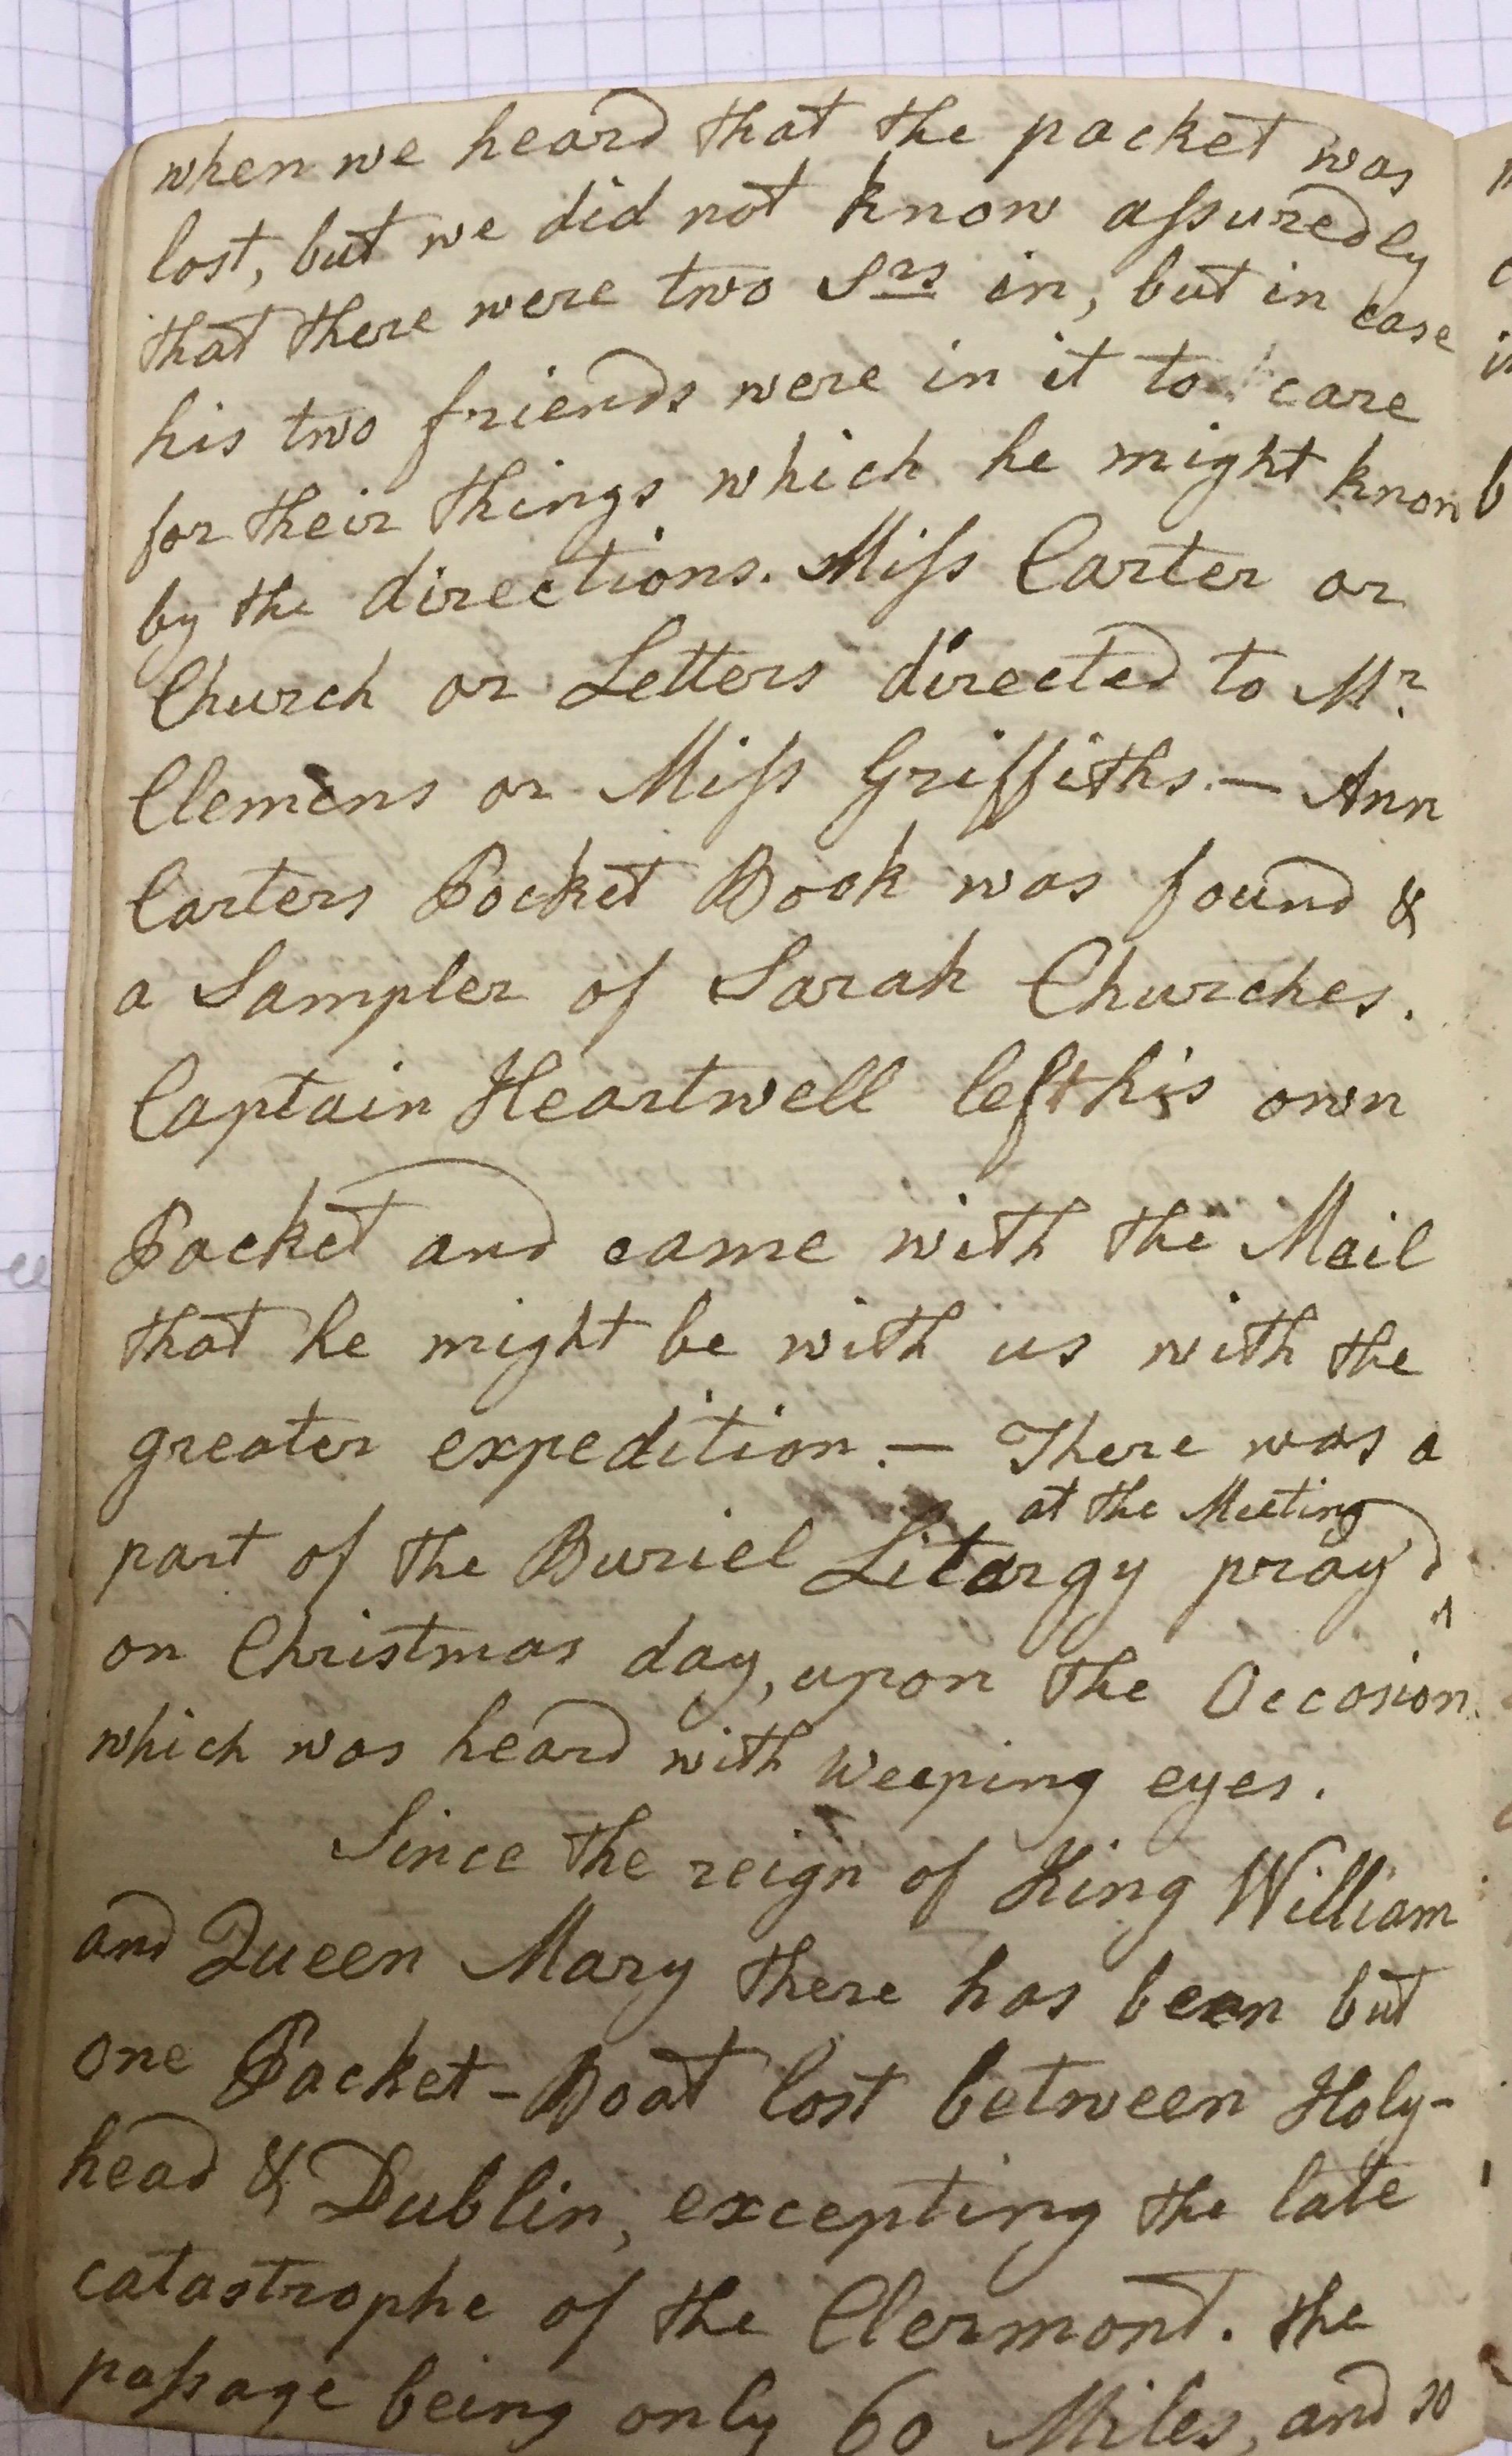 when we heard that the packet was
lost, but we did not know aſsuredly
that there were two Srs in, but in case
his two friends were in it to care
for their things which he might know
by the directions. Miſs Carter or
Church or Letters directed to Mr.
Clemens or Miſs Griffiths. — Ann
Carters Pocket Book was found &
a Sampler of Sarah Churches.
Captain Heartwell left his own
Packet and came with the Mail
that he might be with us with the
greater expedition. — There was a
at the Meeting
part of the Buriel Litargy pray'd ^
on Christmas day, upon the Occasion
which was heard with weeping eyes.
Since the reign of King William
and Queen Mary there has been but
one Packet-Boat lost between Holy-
head & Dublin, excepting the late
catastrophe of the Clermont. the
paſsage being only 60 Miles, and so